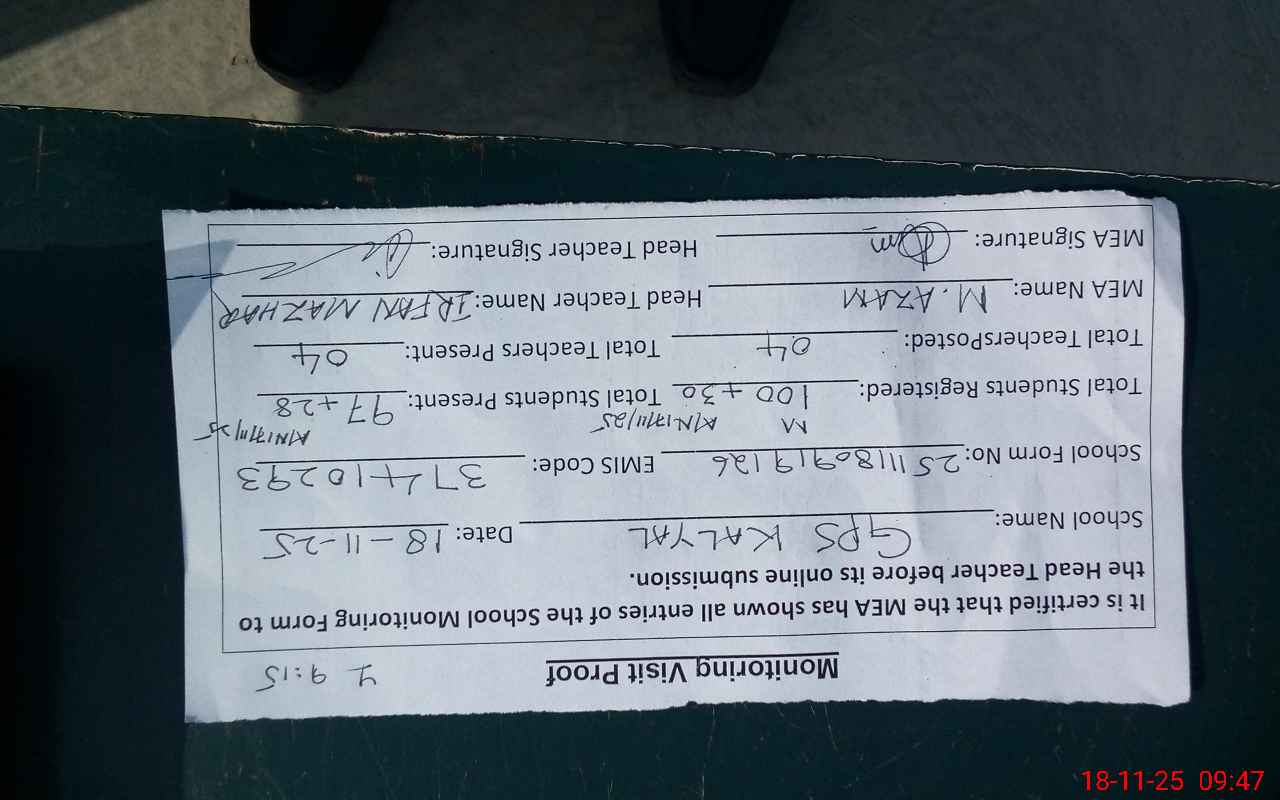 Monitoring Visit Proof
9:15
It is certified that the MEA has shown all entries of the School Monitoring Form to
the Head Teacher before its online submission.
School Name: GPS KALYAL Date: 18-11-25
School Form No: 2511180919126 EMIS Code: 37410293
M A/N 17/11/25 A/N 17/11/25
Total Students Registered: 100 + 30 Total Students Present: 97 + 28
Total TeachersPosted: 04 Total Teachers Present: 04
MEA Name: M. AZAM Head Teacher Name: IRFAN MAZHAR
MEA Signature: Head Teacher Signature:
18-11-25 09:47